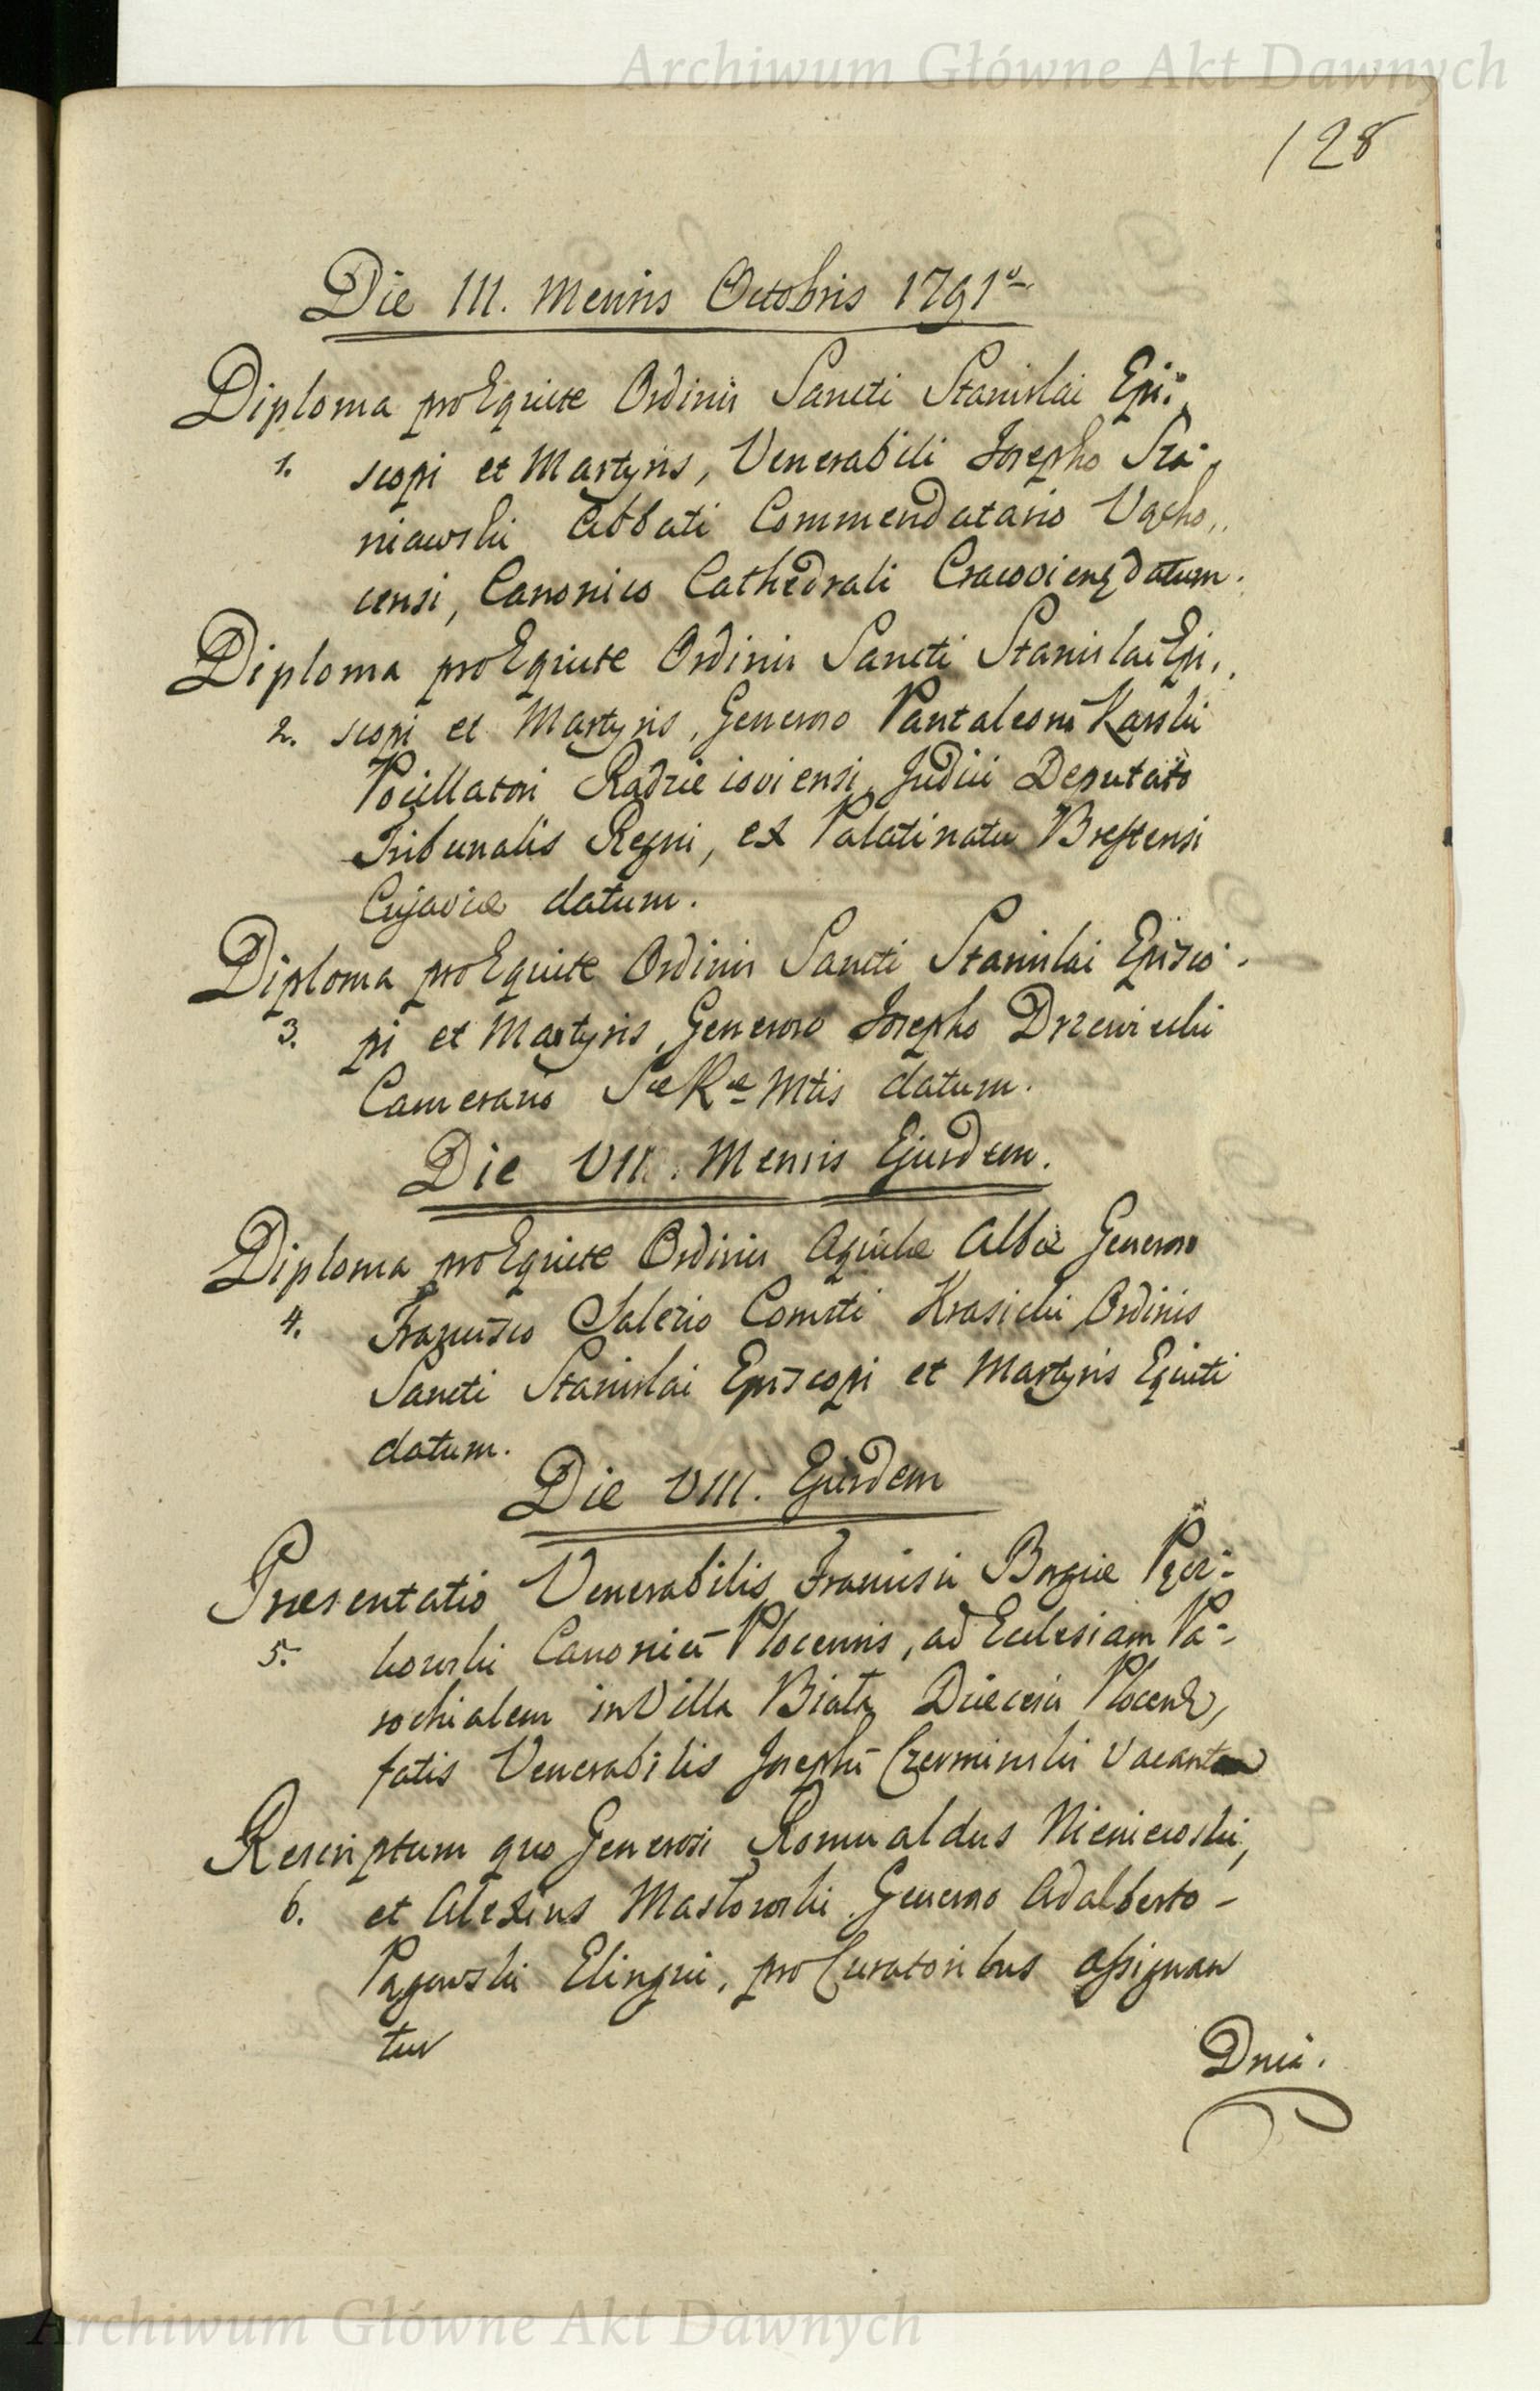 Archiwum Główne Akt Dawnych
128
Die III. Mensis Octobris 1791o
Diploma pro Equite Ordinis Sancti Stanislai Epi-
1. scopi et Martyris, Venerabili Josepho Sza-
niawski Abbati Commendatario Vącho,,
censi, Canonico Cathedrali Cracovien datum.
Diploma pro Equite Ordinis Sancti Stanislai Epi,,
2. scopi et Martyris, Generoso Pantaleoni Karski
Pocillatori Radzieioviensi, Judici Deputato
Tribunalis Regni, ex Palatinatu Brestensi
Cujaviæ datum.
Diploma pro Equite Ordinis Sancti Stanislai Episco-
3. pi et Martyris, Generoso Josepho Drzewiecki
Camerario Sæ Ræ Mtis datum.
Die VII. Mensis Ejusdem.
Diploma pro Equite Ordinis Aquilæ Albæ Generoso
4. Francisco Salezio Comiti Krasicki Ordinis
Sancti Stanislai Episcopi et Martyris Equiti
datum.
Die VIII. Ejusdem
Præsentatio Venerabilis Francisci Borgiæ
5. Canonici Plocensis, ad Ecclesiam Pa-
rochialem in Villa Biała Diæcesis Plocens,
fatis Venerabilis Josephi Czerminski vacantem
Rescriptum quo Generosi Romualdus Nieniewski,
6. et Alexius Masłowski Generoso Adalberto -
Pągowski Elingui, pro Curatoribus assignan
tur
Dnia.
Archiwum Główne Akt Dawnych